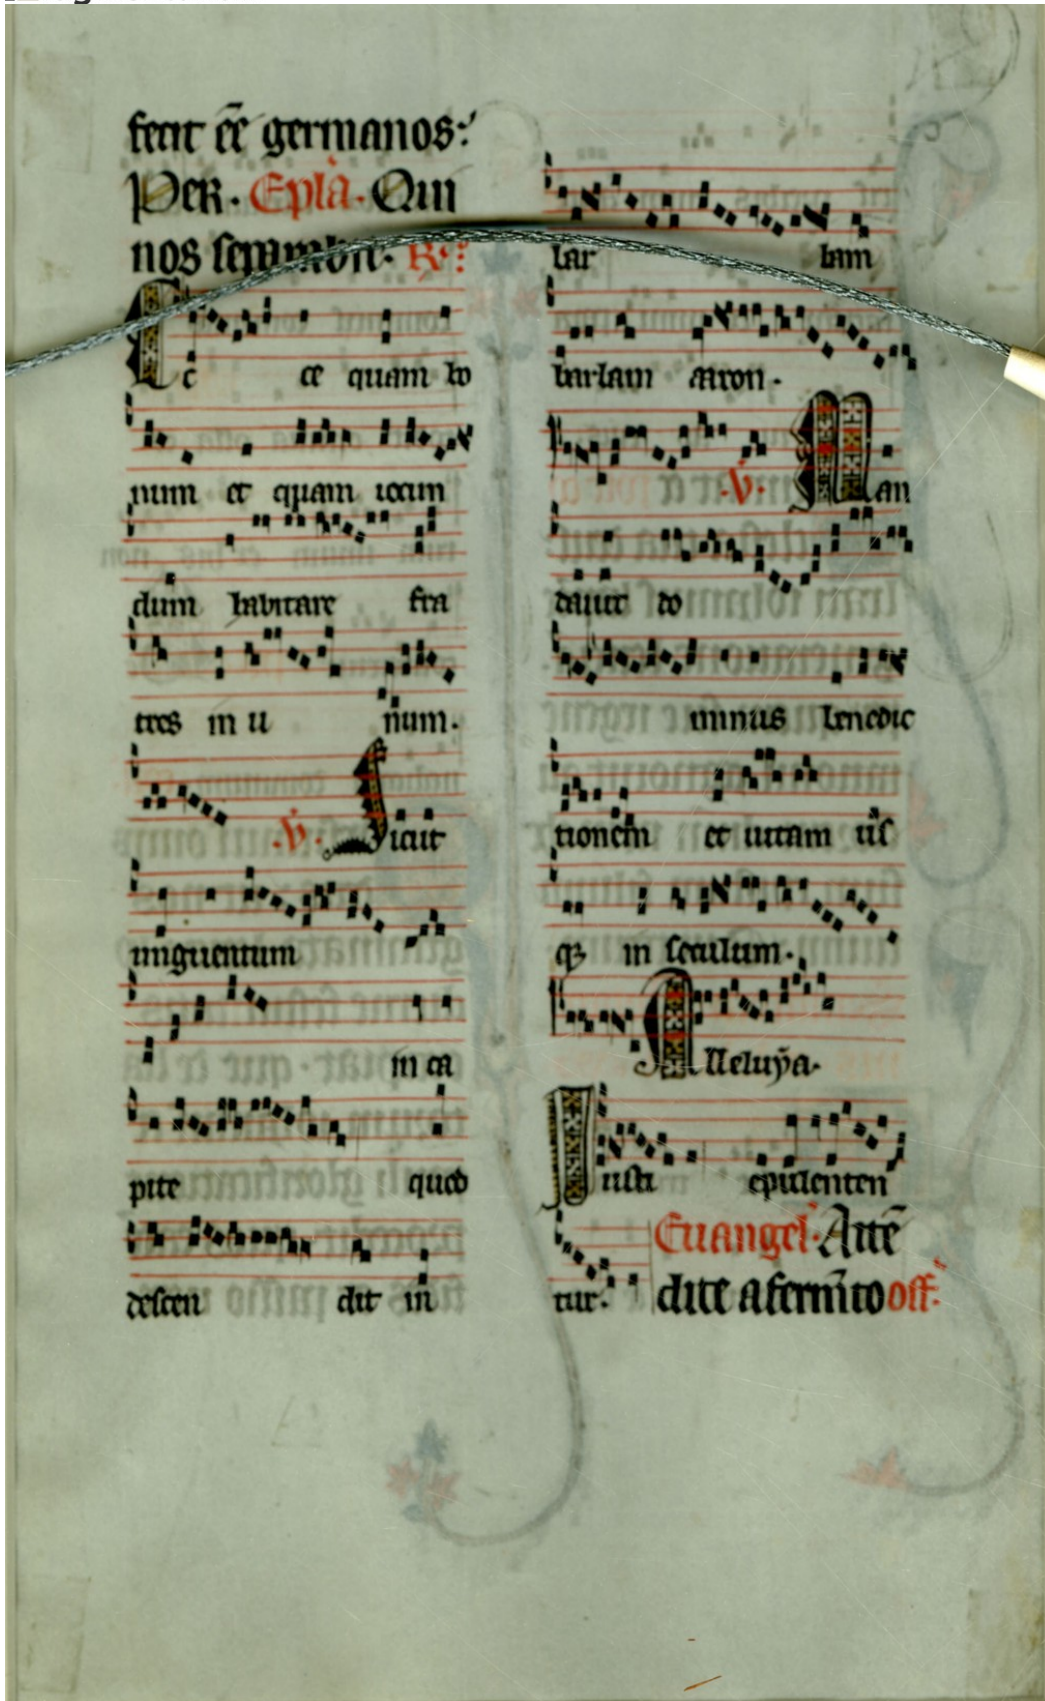 fecit ēē germanos:
Per. Epl'a. Qui
nos separabit. R.
Ecce quam bo
num et quam iocun
dum habitare fra
tres in u num.
.V. Sicut
unguentum
in ca
pite quod
descen dit in
bar bam
barbam aaron.
.V. Man
dauit do
minus benedic
tionem et uitam us
q; in seculum.
Alleluya.
Iusti epulenten
tur. Euangel'. Atten
dite a fermēto off.